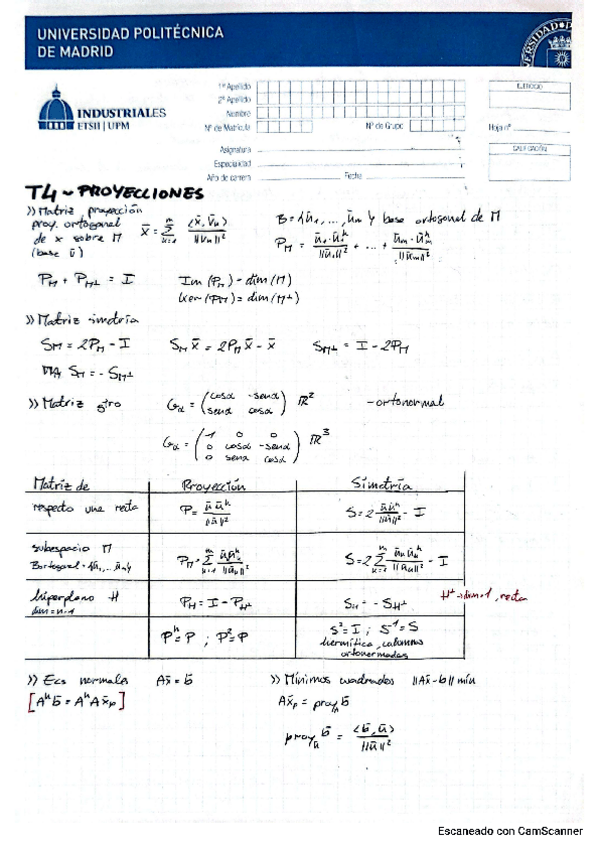 UNIVERSIDAD POLITÉCNICA
DE MADRID
INDUSTRIALES
ETSII | UPM
1º Apellido
2º Apellido
Nombre
Nº de Matrícula
Nº de Grupo
Asignatura
Especialidad
Año de carrera
Fecha
EJERCICIO
Hoja nº
CALIFICACIÓN
T4 ~ PROYECCIONES
>> Matriz proyección
proy. ortogonal
de x sobre M
(base ū)
x̄ = Σ_{k=1}^{m} <x̄, v̄_k> / ||v_k||²
B = {ū₁, ..., ū_m} base ortogonal de M
P_M = ū₁·ū₁ʰ / ||ū₁||² + ... + ū_m·ū_mʰ / ||ū_m||²
P_M + P_M⊥ = I
Im (P_M) = dim (M)
Ker (P_M) = dim (M⊥)
>> Matriz simetría
S_M = 2P_M - I
S_M x̄ = 2P_M x̄ - x̄
S_M⊥ = I - 2P_M
S_M = - S_M⊥
>> Matriz giro
G_α = (cosα -senα
senα cosα) ℝ²
- ortonormal
G_α = (1 0 0
0 cosα -senα
0 senα cosα) ℝ³
Matriz de Proyección Simetría
respecto una recta P = ū ūʰ / ||ū||² S = 2 ū ūʰ / ||ū||² - I
subespacio M
B ortogonal = {ū₁, ... ū_m} P_M = Σ_{k=1}^{m} ū_k ū_kʰ / ||ū_k||² S = 2 Σ_{k=1}^{m} ū_k ū_kʰ / ||ū_k||² - I
hiperplano H
dim = n-1 P_H = I - P_H⊥ S_H = - S_H⊥ H⊥ → dim = 1, recta
Pʰ = P ; P² = P S² = I ; S⁻¹ = S
hermítica, columnas
ortonormadas
>> Ecs normales Ax̄ = b̄
[Aʰ b̄ = Aʰ A x̄_p]
>> Mínimos cuadrados ||Ax̄ - b|| mín
A x̄_p = proy_A b̄
proy_ū b̄ = <b̄, ū> / ||ū||²
Escaneado con CamScanner